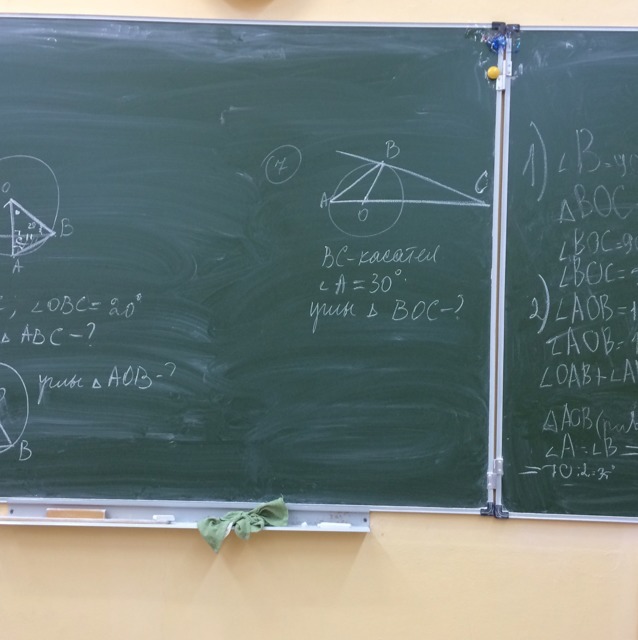 O
B
A
∠OBC = 20°
△ ABC - ?
углы △ AOB - ?
B
7
B
A
O
C
BC - касател
∠A = 30°
углы △ BOC - ?
1) ∠B =
△BOC
∠BOC =
∠BOC =
2) ∠AOB = 1
∠AOB =
∠OAB + ∠A
△AOB
∠A = ∠B =